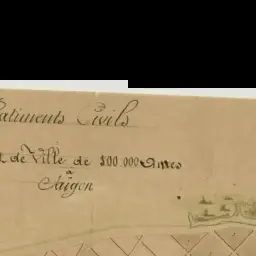 Batiments Civils
de Ville de 500.000 Ames
à
Saïgon